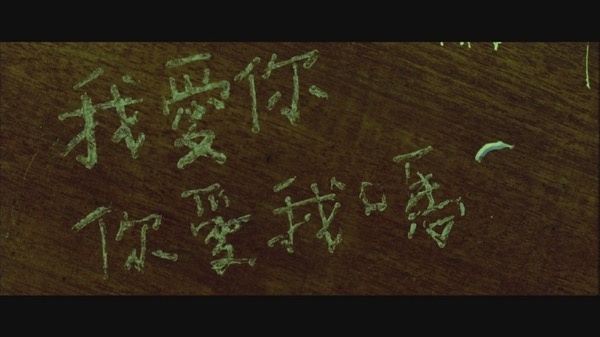 我愛你
你愛我嗎